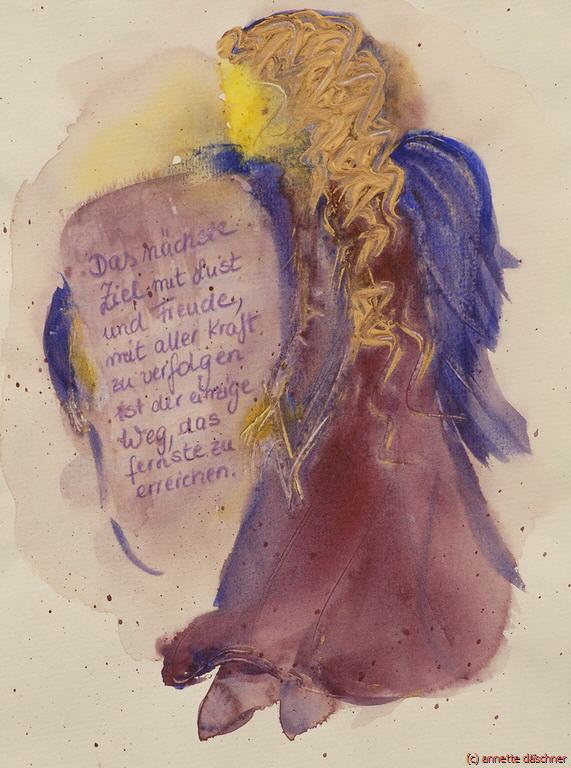 Das nächste
Ziel mit Lust
und Freude,
mit aller Kraft
zu verfolgen
ist der einzige
Weg, das
fernste zu
erreichen.
(c) annette däschner